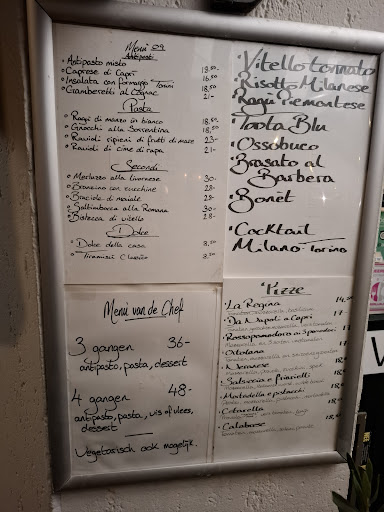 Menu 09
Antipasti
Antipasto misto
Caprese di Capri 18,50
Insalata con formaggio Tomini 16,50
Gamberetti al Cognac 18,50
21-
Pasta
Ragù di manzo in bianco 18,50
Gnocchi alla Sorrentina 18,50
Ravioli ripieni di frutti di mare 23-
Ravioli di cime di rapa 21-
Secondi
Merluzzo alla livornese 30-
Branzino con zucchine 28-
Braciola di maiale 28-
Saltimbocca alla Romana 30-
Battecca di vitello 28-
Dolce
Dolce della casa 8,50
Tiramisù Classico 8,50
Vitello tonnato
Risotto Milanese
Ragù Piemontese
Torta Blu
Ossobuco
Brasato al
Barbera
Bonèt
Cocktail
Milano-Torino
Menu van de Chef
3 gangen 36-
antipasto, pasta, dessert
4 gangen 48-
antipasto, pasta, vis of vlees,
dessert
Vegetarisch ook mogelijk.
Pizze
La Regina 14,50
Da Napoli a Capri 17-
Rossopomodoro ai 3 pomodori 17-
Ortolana
Noranese
Salsiccia e friarielli
Mortadella e pistacchi
Cetarella
Calabrese